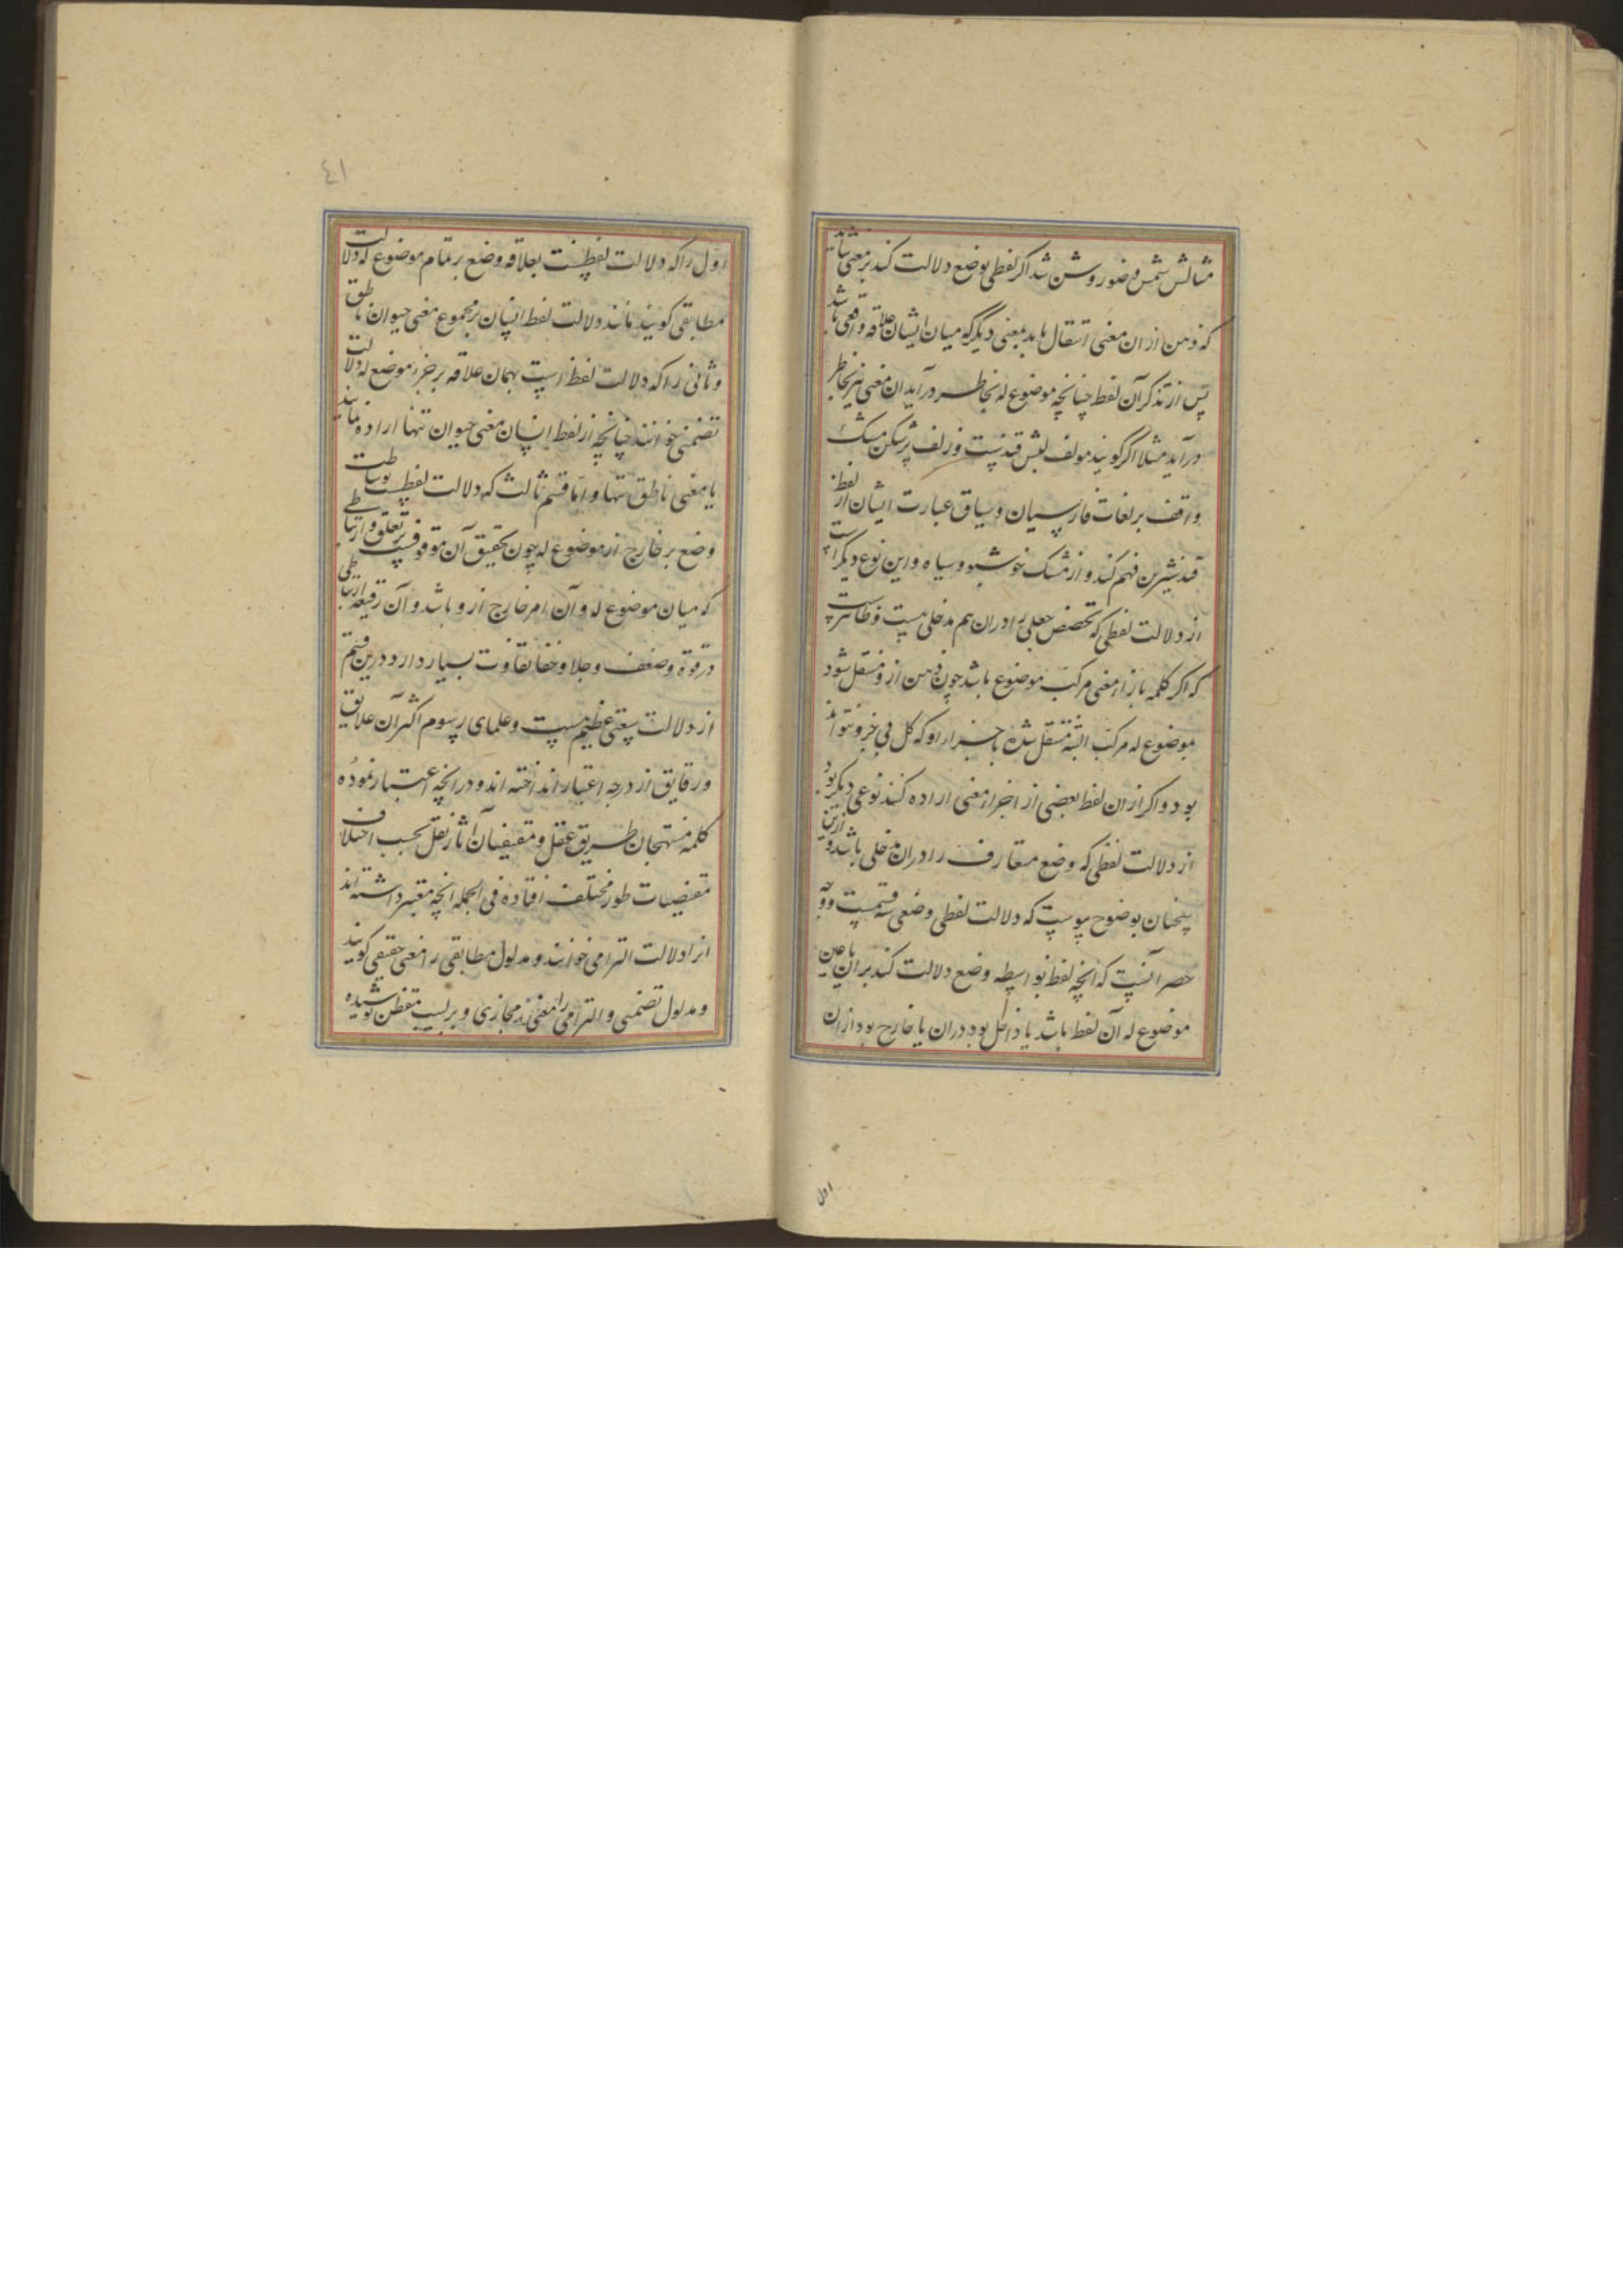 مثالش شمس و ضور روشن شد اکر لفظی بوضع دلالت کند بر معنی
که ذهن از ان معنی انتقال یابد بمعنی دیکر که میان ایشان علاقه واقعی باشد
پس از تذکر آن لفظ چنانچه موضوع له بخاطر درآید ان معنی نیز بخاطر
درآید مثلا اکر کویند مولف لبش قندیست و زلف پرشکن مشک
واقف بر لغات فارسیان و سیاق عبارت ایشان از لفظ
قند شیرین فهم کند و از مشک خوشبو و سیاه و این نوع دیکر است
از دلالت لفظی که تخصص جعلی را دران هم مدخلی هست و ظاهرست
که اکر کلمه بازاء معنی مرکب موضوع باشد چون ذهن از و منتقل شود
بموضوع له مرکب البته منتقل شده باجزاء او که کل بی جزو نتواند
بود و اکر از ان لفظ بعضی از اجزاء معنی اراده کنند نوعی دیکر بود
از دلالت لفظی که وضع متعارف را دران مدخلی باشد و ازین
سخنان بوضوح پیوست که دلالت لفظی وضعی سه قسمست و وجه
حصر آنست که انچه لفظ بواسطه وضع دلالت کند بران یا عین
موضوع له آن لفظ باشد یا داخل بود دران یا خارج بود ازان
اول
٤١
اول را که دلالت لفظست بعلاقه وضع بر تمام موضوع له دلالت
مطابقی کویند مانند دلالت لفظ انسان بر مجموع معنی حیوان ناطق
و ثانی را که دلالت لفظ است بهمان علاقه بر جزء موضع له دلالت
تضمنی خوانند چنانچه از لفظ انسان معنی حیوان تنها اراده نمایند
یا معنی ناطق تنها و اما قسم ثالث که دلالت لفظست بوساطت
وضع بر خارج از موضوع له چون تحقیق آن موقوفست بر تعلق و ارتباطی
که میان موضوع له و آن امر خارج از و باشد و آن رقیقه ارتباطی
در قوة و ضعف و جلا و خفا تفاوت بسیار دارد درین قسم
از دلالت سعتی عظیم هست و علمای رسوم اکثر آن علایق
و رقایق از درجه اعتبار انداخته اند و در انچه اعتبار نموده
کلمه منتهجان طریق عقل و مقتفیان آثار نقل بحسب اختلاف
مقتضیات طور مختلف افتاده فی الجمله انچه معتبر داشته اند
انرا دلالت التزامی خوانند و مدلول مطابقی را معنی حقیقی کویند
و مدلول تضمنی و التزامی را معنی مجازی و بر لبیب متفطن پوشیده